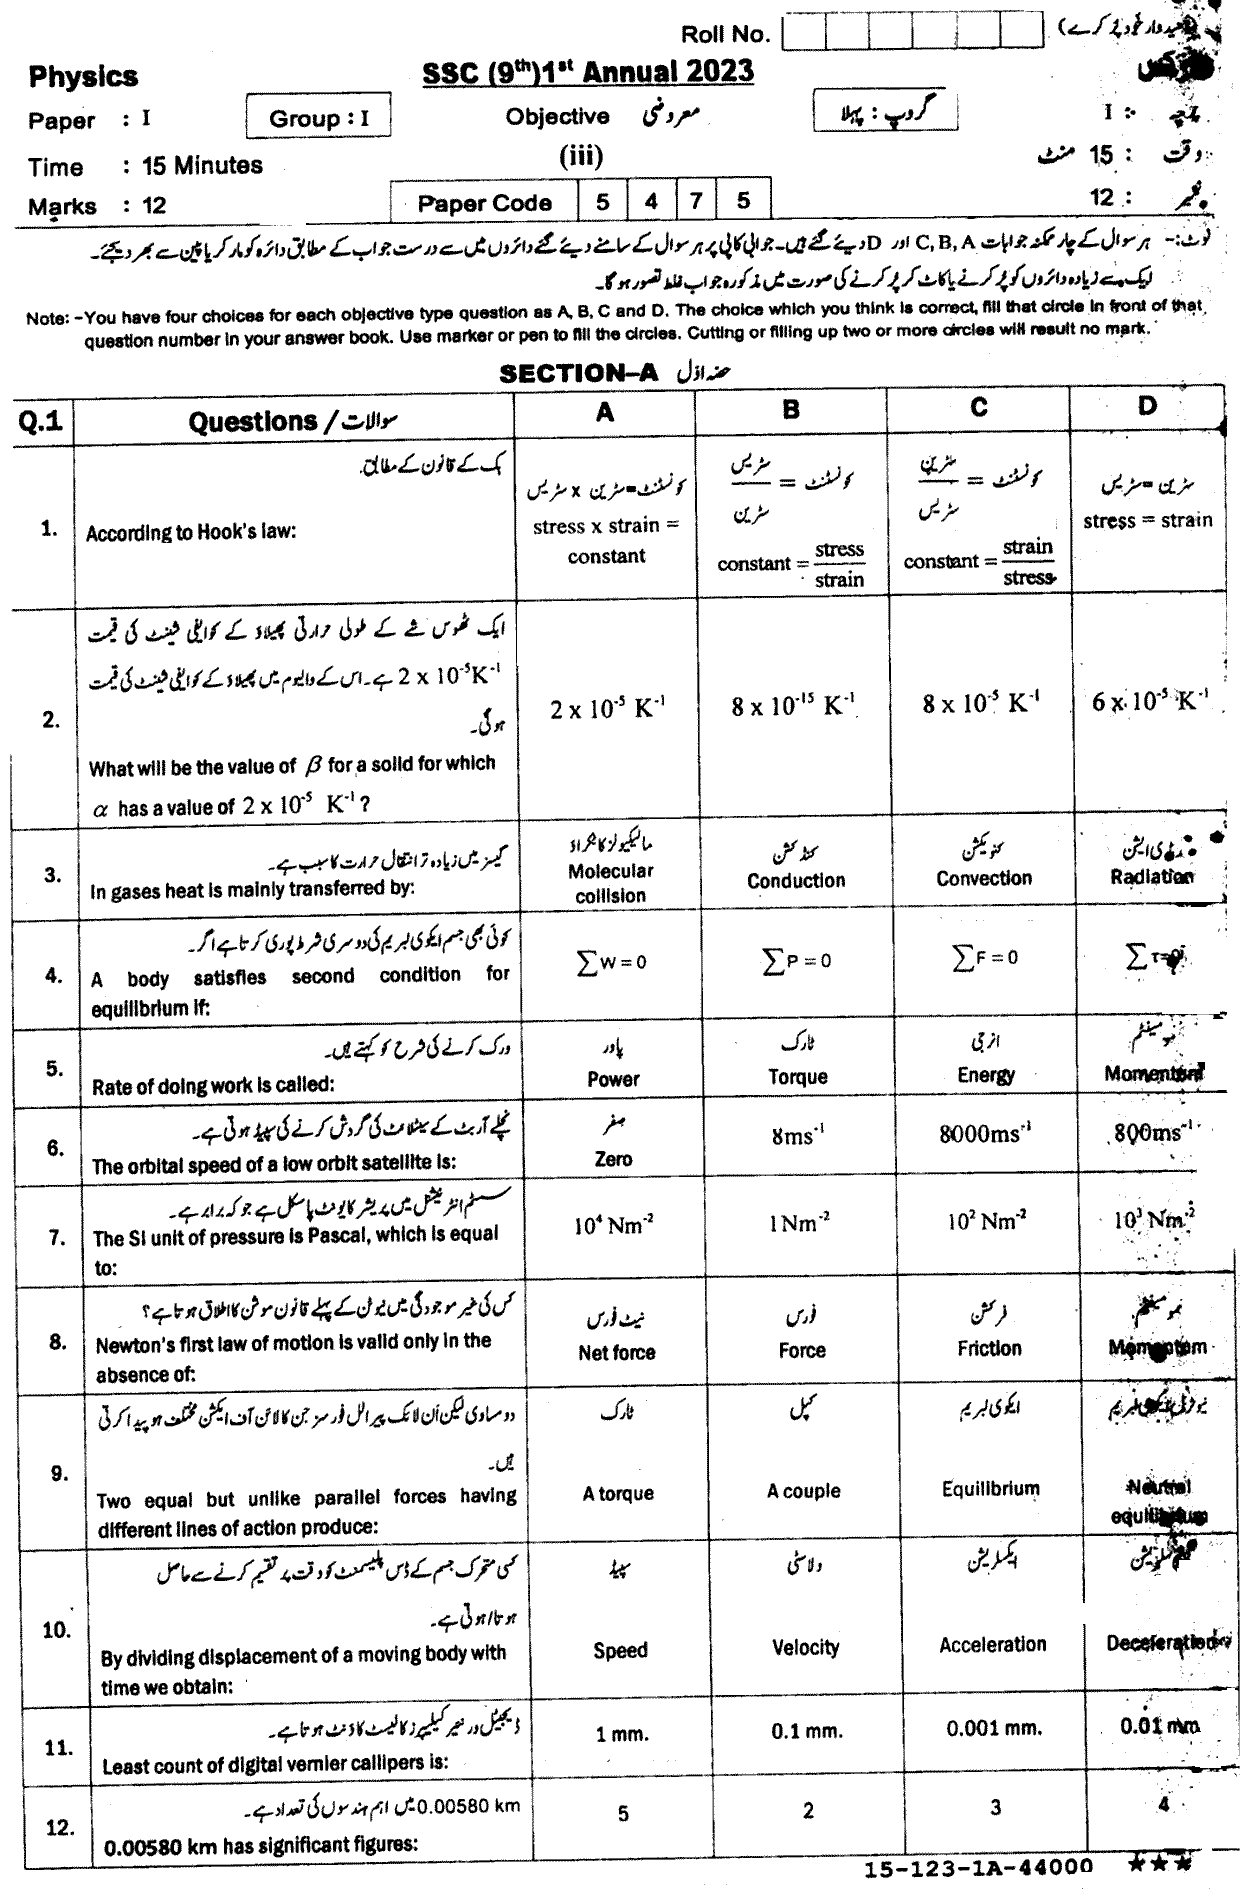 Roll No. (امیدوار خود پُر کرے)
Physics SSC (9th)1st Annual 2023 فزکس
Paper : I Group : I Objective معروضی گروپ : پہلا پرچہ : I
Time : 15 Minutes (iii) وقت : 15 منٹ
Marks : 12 Paper Code 5 4 7 5 نمبر : 12
نوٹ:- ہر سوال کے چار ممکنہ جوابات C, B, A اور D دیئے گئے ہیں۔ جوابی کاپی پر ہر سوال کے سامنے دیئے گئے دائروں میں سے درست جواب کے مطابق دائرہ کو مارکر یا پین سے بھر دیجئے۔
ایک سے زیادہ دائروں کو پُر کرنے یا کاٹ کر پُر کرنے کی صورت میں مذکورہ جواب غلط تصور ہو گا۔
Note: -You have four choices for each objective type question as A, B, C and D. The choice which you think is correct, fill that circle in front of that
question number in your answer book. Use marker or pen to fill the circles. Cutting or filling up two or more circles will result no mark.
SECTION–A حصہ اوّل
Q.1 Questions / سوالات A B C D
1. ہک کے قانون کے مطابق۔
According to Hook's law:
کونسٹنٹ=سٹرین x سٹریس
stress x strain =
constant
کونسٹنٹ = سٹریس / سٹرین
constant = stress / strain
کونسٹنٹ = سٹرین / سٹریس
constant = strain / stress
سٹرین=سٹریس
stress = strain
2. ایک ٹھوس شے کے طولی حرارتی پھیلاؤ کے کوایفی شینٹ کی قیمت
2 x 10⁻⁵K⁻¹ ہے۔ اس کے والیوم میں پھیلاؤ کے کوایفی شینٹ کی قیمت
ہوگی۔
What will be the value of β for a solid for which
α has a value of 2 x 10⁻⁵ K⁻¹ ?
2 x 10⁻⁵ K⁻¹
8 x 10⁻¹⁵ K⁻¹
8 x 10⁻⁵ K⁻¹
6 x 10⁻⁵ K⁻¹
3. گیسز میں زیادہ تر انتقال حرارت کا سبب ہے۔
In gases heat is mainly transferred by:
مالیکیولز کا ٹکراؤ
Molecular
collision
کنڈکشن
Conduction
کنویکشن
Convection
ریڈی ایشن
Radiation
4. کوئی بھی جسم ایکوی لبریم کی دوسری شرط پوری کرتا ہے اگر۔
A body satisfies second condition for
equilibrium if:
∑W = 0
∑P = 0
∑F = 0
∑τ=0
5. ورک کرنے کی شرح کو کہتے ہیں۔
Rate of doing work is called:
پاور
Power
ٹارک
Torque
انرجی
Energy
مومینٹم
Momentum
6. نچلے آربٹ کے سیٹلائٹ کی گردش کرنے کی سپیڈ ہوتی ہے۔
The orbital speed of a low orbit satellite is:
صفر
Zero
8ms⁻¹
8000ms⁻¹
800ms⁻¹
7. سسٹم انٹرنیشنل میں پریشر کا یونٹ پاسکل ہے جو کہ برابر ہے۔
The SI unit of pressure is Pascal, which is equal
to:
10⁴ Nm⁻²
1Nm⁻²
10² Nm⁻²
10³ Nm⁻²
8. کس کی غیر موجودگی میں نیوٹن کے پہلے قانون موشن کا اطلاق ہوتا ہے؟
Newton's first law of motion is valid only in the
absence of:
نیٹ فورس
Net force
فورس
Force
فرکشن
Friction
مومینٹم
Momentum
9. دو مساوی لیکن اَن لائک پیرالل فورسز جن کا لائن آف ایکشن مختلف ہو پیدا کرتی
ہیں۔
Two equal but unlike parallel forces having
different lines of action produce:
ٹارک
A torque
کپل
A couple
ایکوی لبریم
Equilibrium
نیوٹرل ایکوی لبریم
Neutral
equilibrium
10. کسی متحرک جسم کے ڈس پلیسمنٹ کو وقت پر تقسیم کرنے سے حاصل
ہوتا/ہوتی ہے۔
By dividing displacement of a moving body with
time we obtain:
سپیڈ
Speed
ولاسٹی
Velocity
ایکسلریشن
Acceleration
Deceleration
11. ڈیجیٹل ورنیر کیلیپرز کا لیسٹ کاؤنٹ ہوتا ہے۔
Least count of digital vernier callipers is:
1 mm.
0.1 mm.
0.001 mm.
0.01 mm
12. 0.00580 km میں اہم ہندسوں کی تعداد ہے۔
0.00580 km has significant figures:
5
2
3
4
15-123-1A-44000 ★★★